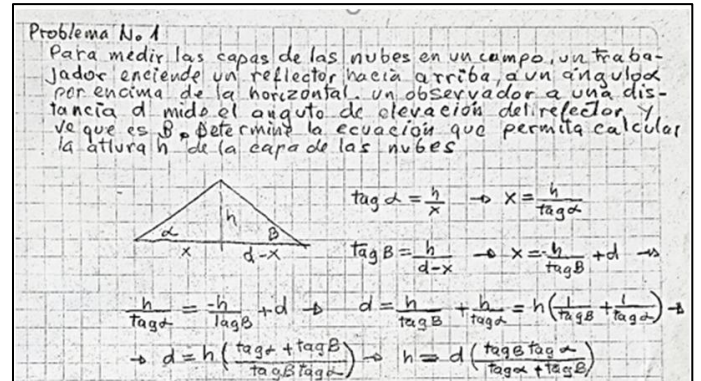 Problema No 1
Para medir las capas de las nubes en un campo, un traba-
jador enciende un reflector hacia arriba, a un ángulo α
por encima de la horizontal. un observador a una dis-
tancia d mide el anguto de elevación del reflector y
ve que es B. Determine la ecuación que permita calcular
la altura h de la capa de las nubes
α h B
x d-x
tag α = h/x → x = h/tag α
tag B = h/d-x → x = -h/tag B + d →
h/tag α = -h/tag B + d → d = h/tag B + h/tag α = h(1/tag B + 1/tag α) →
→ d = h(tag α + tag B/tag B tag α) → h = d(tag B tag α/tag α + tag B)